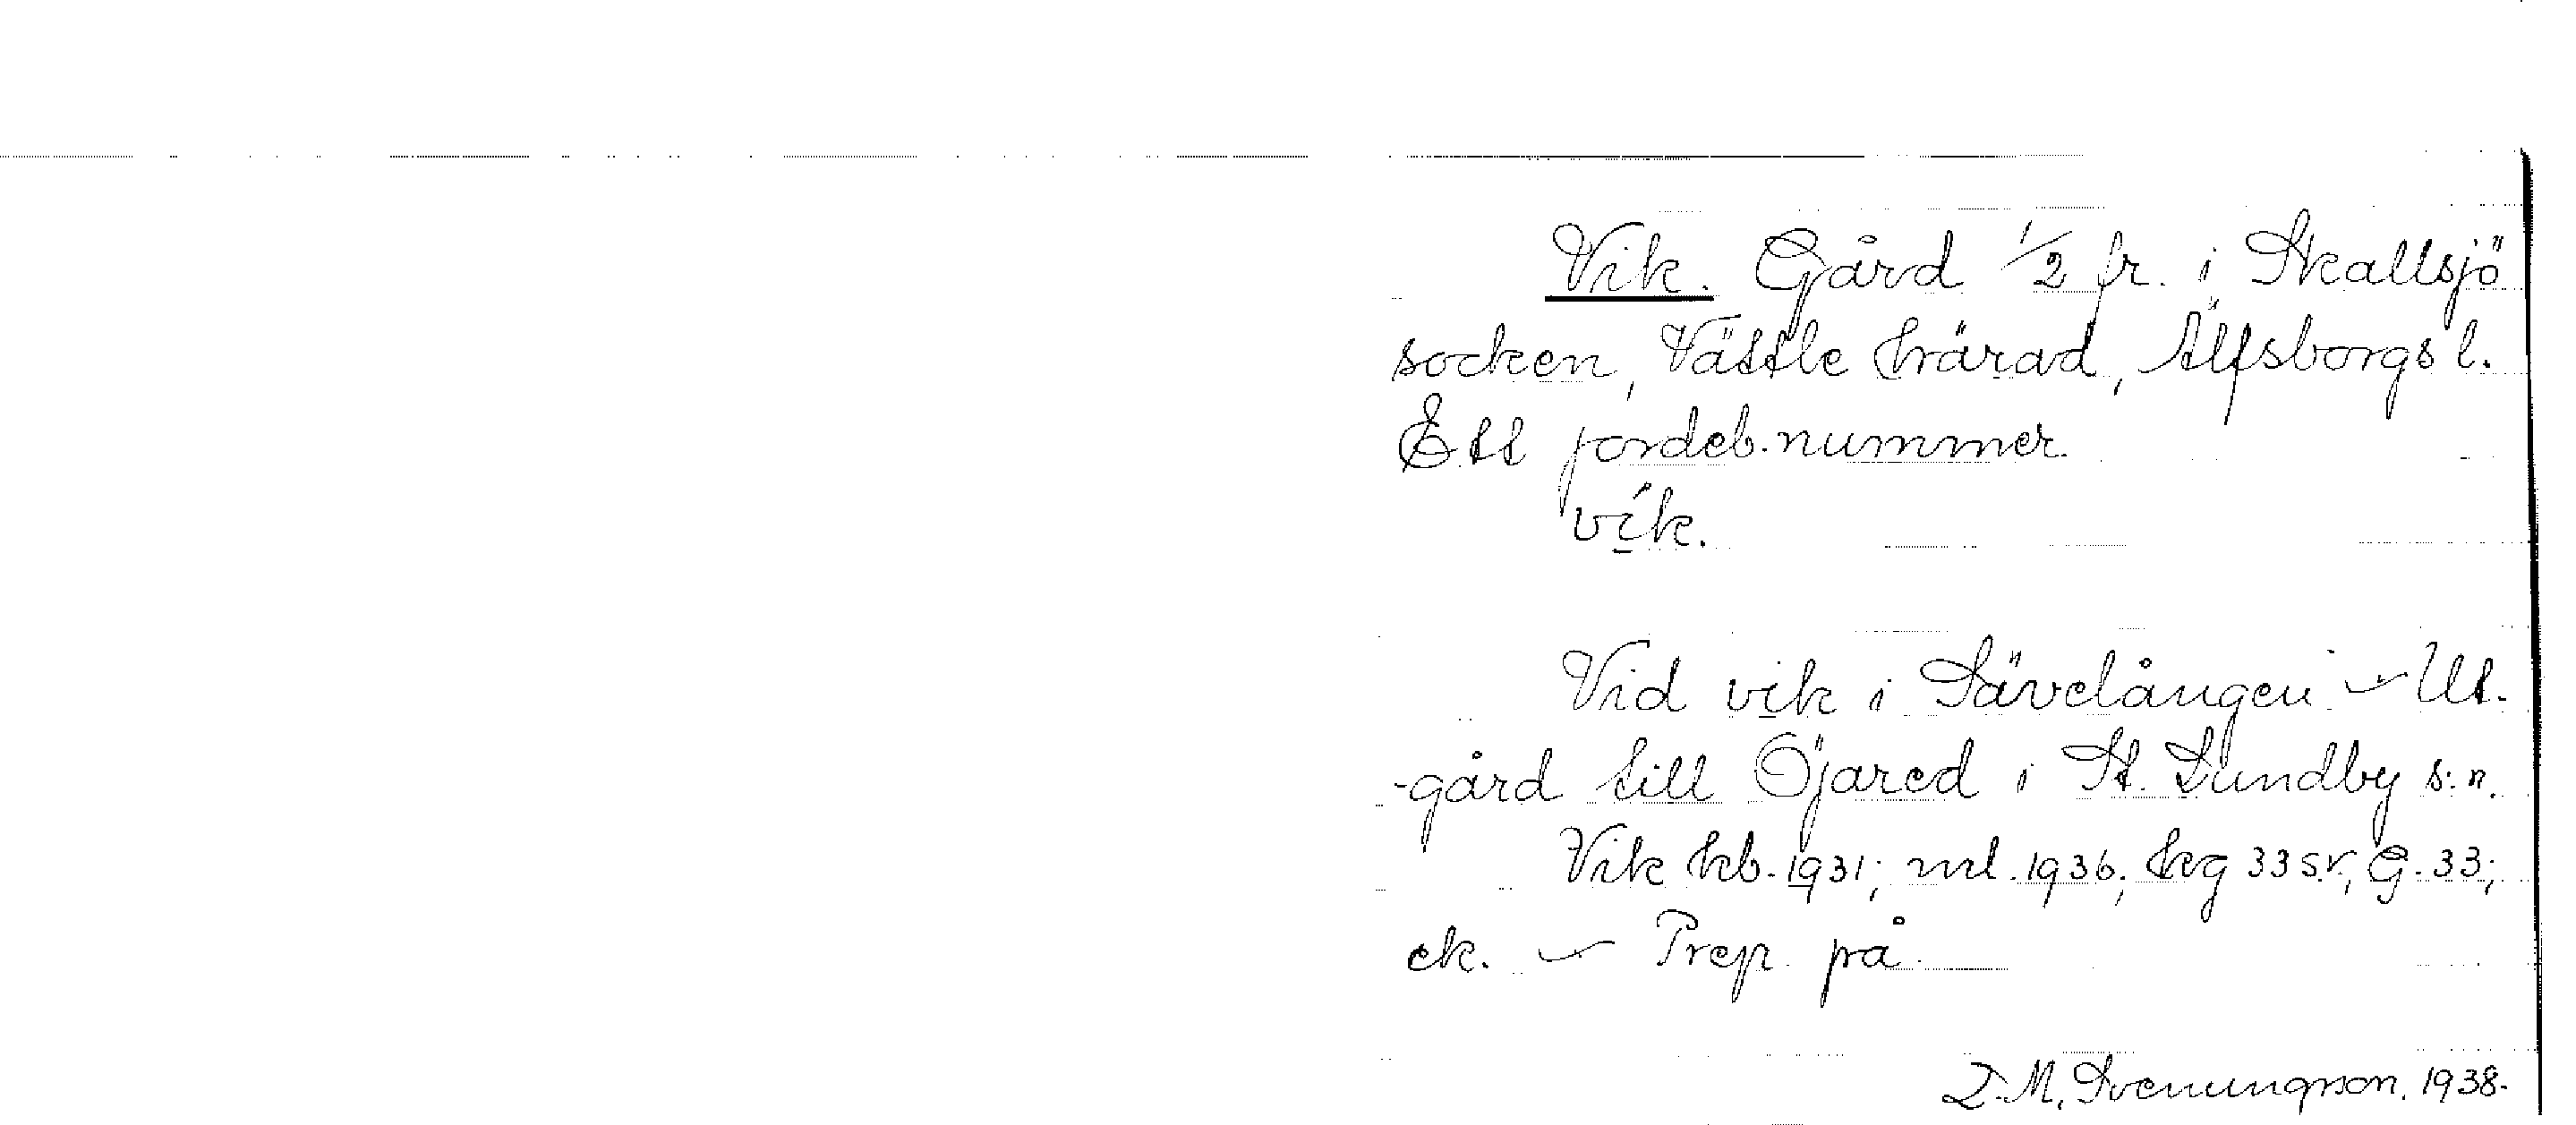 Vik. Gård 1/2 fr. i Skallsjö
socken, Vättle härad, Älfsborgs l.
Ett jordeb. nummer.
vík.
Vid vik i Sävelången – Ut-
-gård till Öjared i St. Lundby s:n.
Vik kb. 1931; ml. 1936; hvg 33 s.v, G. 33;
ek. – Prep. på
M. Svenungson. 1938.